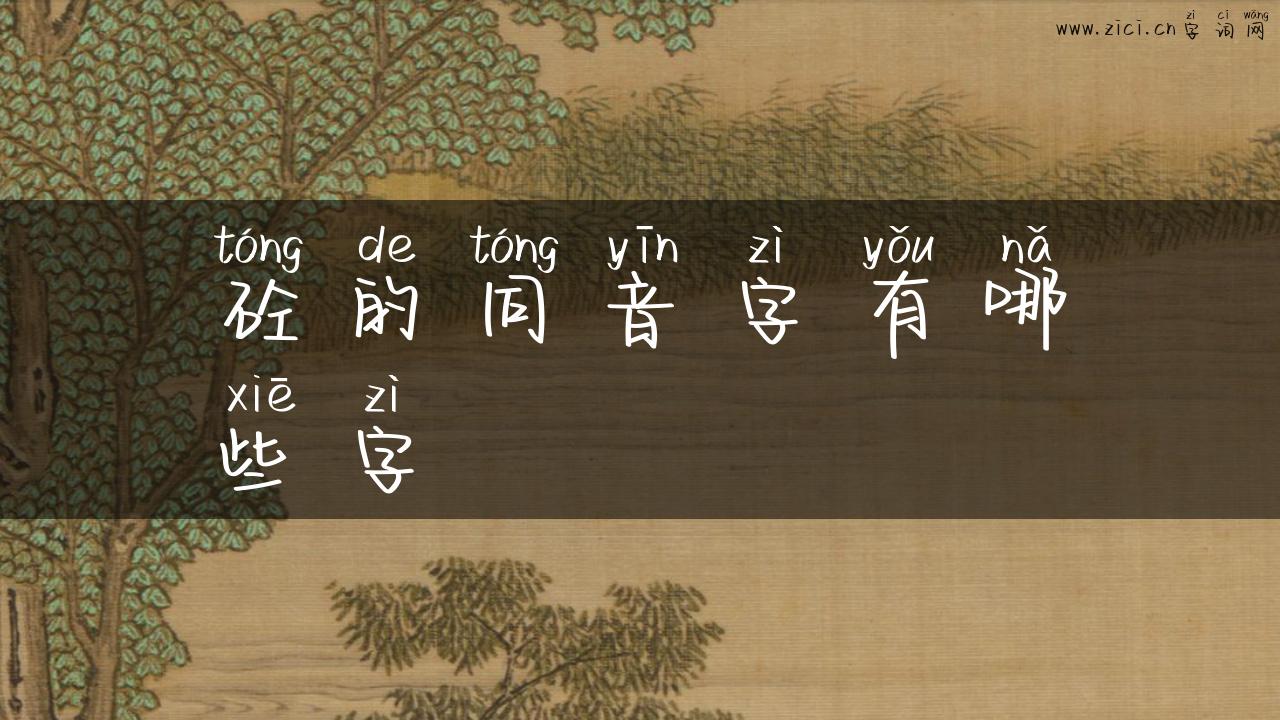 zì cí wǎng
www.zici.cn 字 词 网
tóng de tóng yīn zì yǒu nǎ
砼 的 同 音 字 有 哪
xiē zì
些 字